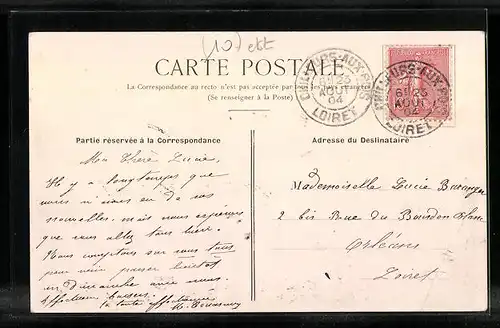 (10) ett
CARTE POSTALE
La Correspondance au recto n'est pas acceptée par tous les pays étrangers
(Se renseigner à la Poste)
CHILLEURS-AUX-BOIS
6E 23
AOUT
04
LOIRET
CHILLEURS-AUX-BOIS
6E 23
AOUT
04
LOIRET
Partie réservée à la Correspondance
Adresse du Destinataire
Ma Chère Lucie,
Il y a longtemps que
nous n'avons eu de vos
nouvelles. mais nous espérons
que vous allez tous bien.
Nous comptons sur vous tous
pour venir passer
un Dimanche avec nous.
Affectueux baisers.
ta toute affectionnée
Mademoiselle Lucie
2 bis Rue du Bourdon-Blanc
Orléans
Loiret